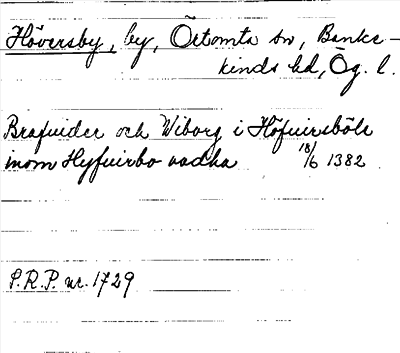 Höversby, by, Örtomta sn, Banke-
kinds hd, Ög. l.
Brafuider och Wiborg i Höfuirsböle
inom Hyfuirbo wadha 18/6 1382
P.R.P. nr. 1729